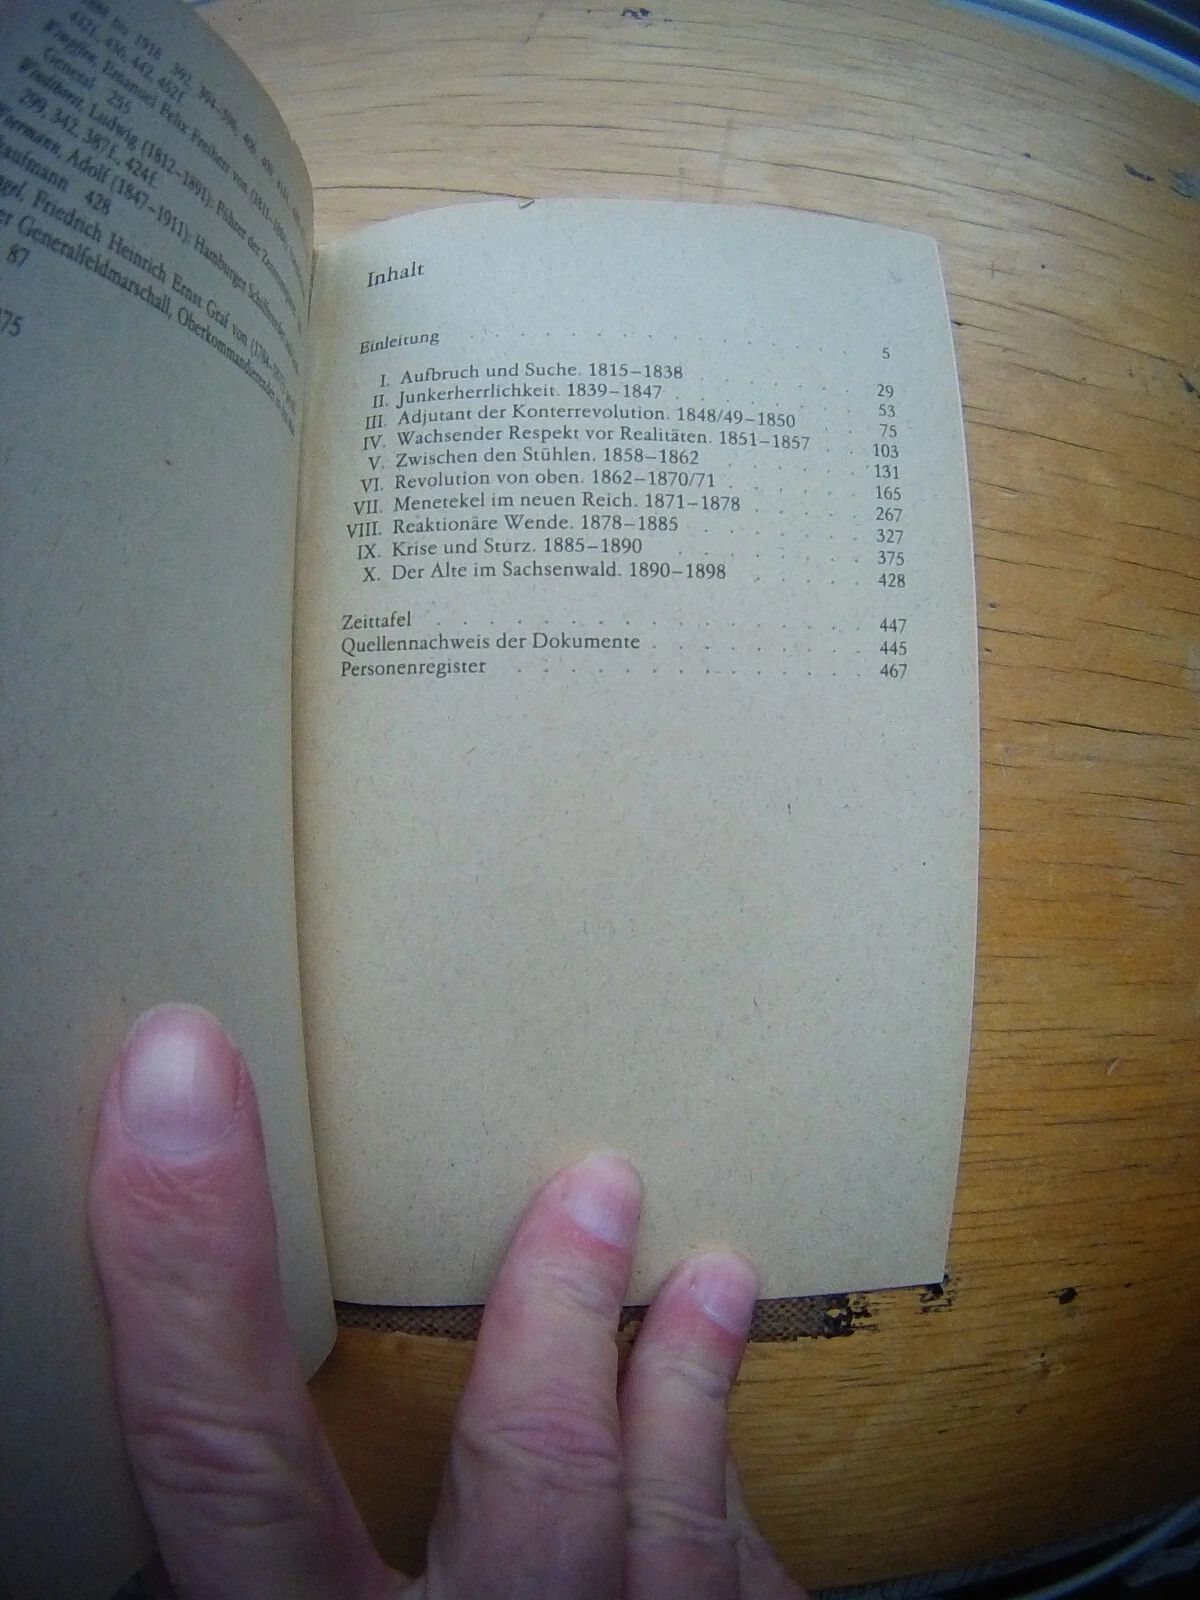 1918 392, 394–396, 406, 409
432f., 436, 442, 452f.
Emanuel Felix Freiherr von (1811–
General 255
Ludwig (1812–1891): Führer der
299, 342, 387f., 424f.
Adolf (1847–1911): Hamburger
kaufmann 428
Friedrich Heinrich Ernst Graf von (1784–
Generalfeldmarschall, Oberkommandierender
87
Inhalt
Einleitung . . . . . . . . . . . . . 5
I. Aufbruch und Suche. 1815–1838 . . . . . . 29
II. Junkerherrlichkeit. 1839–1847 . . . . . . . 53
III. Adjutant der Konterrevolution. 1848/49–1850 . . 75
IV. Wachsender Respekt vor Realitäten. 1851–1857 . . 103
V. Zwischen den Stühlen. 1858–1862 . . . . . . 131
VI. Revolution von oben. 1862–1870/71 . . . . . 165
VII. Menetekel im neuen Reich. 1871–1878 . . . . 267
VIII. Reaktionäre Wende. 1878–1885 . . . . . . 327
IX. Krise und Sturz. 1885–1890 . . . . . . . 375
X. Der Alte im Sachsenwald. 1890–1898 . . . . 428
Zeittafel . . . . . . . . . . . . . . . . 447
Quellennachweis der Dokumente . . . . . . . . 445
Personenregister . . . . . . . . . . . . . 467